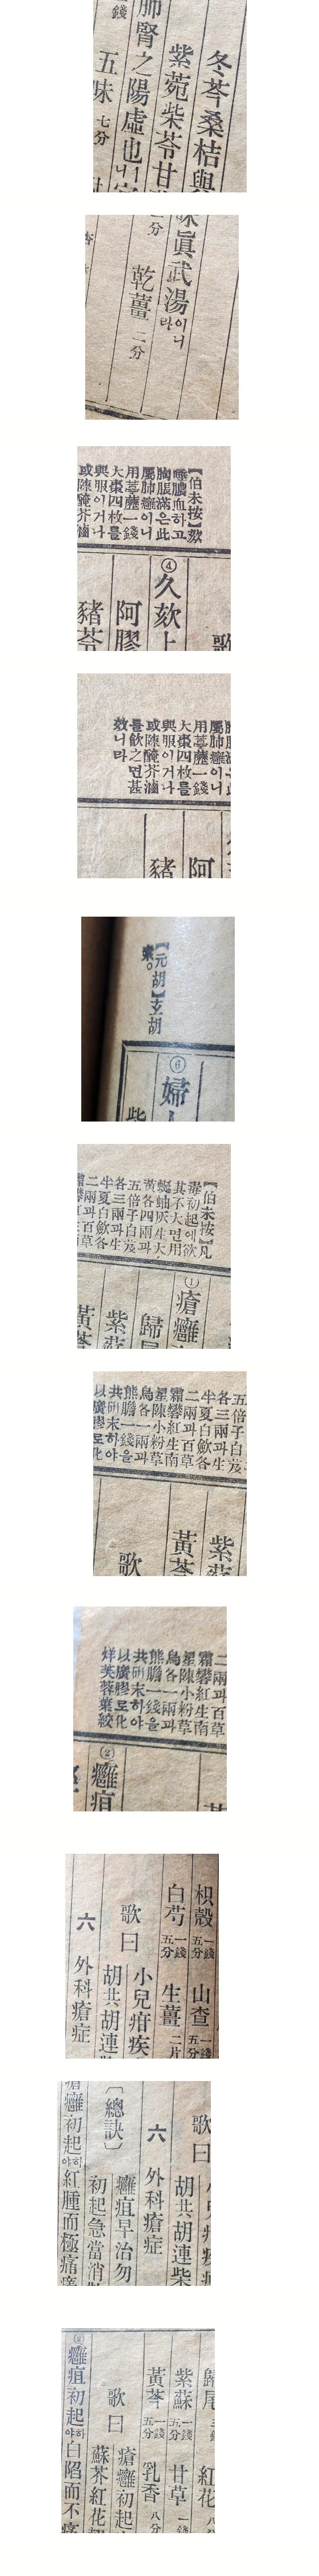 冬芩桑桔與
紫菀柴苓甘
肺腎之陽虛也니
一錢
五味 七分
味眞武湯이라니
一分
乾薑 二分
【伯未按】欬
唾膿血하고
胸脹滿은此
屬肺癰이니
用葶藶一錢
大棗四枚를
與服이거나
或陳醃芥滷
④
久欬上
阿膠
豬苓
歌
屬肺癰이니
用葶藶一錢
大棗四枚를
與服이거나
或陳醃芥滷
를飮之면甚
效니라
阿
豬
【元胡】玄胡
索。
⑥
婦人
柴
【伯未按】凡
毒初起에欲
其不大면用
蜒蚰灰生大
黃各四兩과
五倍子白芨
各三兩과生
半夏白斂各
二兩과百草
霜礬紅
①
瘡癰
歸尾
紫蘇
黃芩
五倍子白芨
各三兩과生
半夏白斂各
二兩과百草
霜礬紅生南
星陳小粉草
烏各一兩과
熊膽一錢을
共硏末하야
以廣膠로化
紫蘇
黃芩
歌
二兩과百草
霜礬紅生南
星陳小粉草
烏各一兩과
熊膽一錢을
共硏末하야
以廣膠로化
烊芙蓉葉絞
②
癰疽
枳殼 一錢五分 山查 一錢五分
白芍 一錢五分 生薑 二片
歌曰 小兒疳疾
胡共胡連
六 外科瘡症
歌曰
胡共胡連柴
六 外科瘡症
〔總訣〕 癰疽早治勿
初起急當消
瘡癰初起야히紅腫而極痛
歸尾 紅花
紫蘇 一錢五分 甘草 一錢
黃芩 一錢五分 乳香 八分
歌曰 瘡癰初起
蘇芥紅花
②
癰疽初起야히白陷而不痛